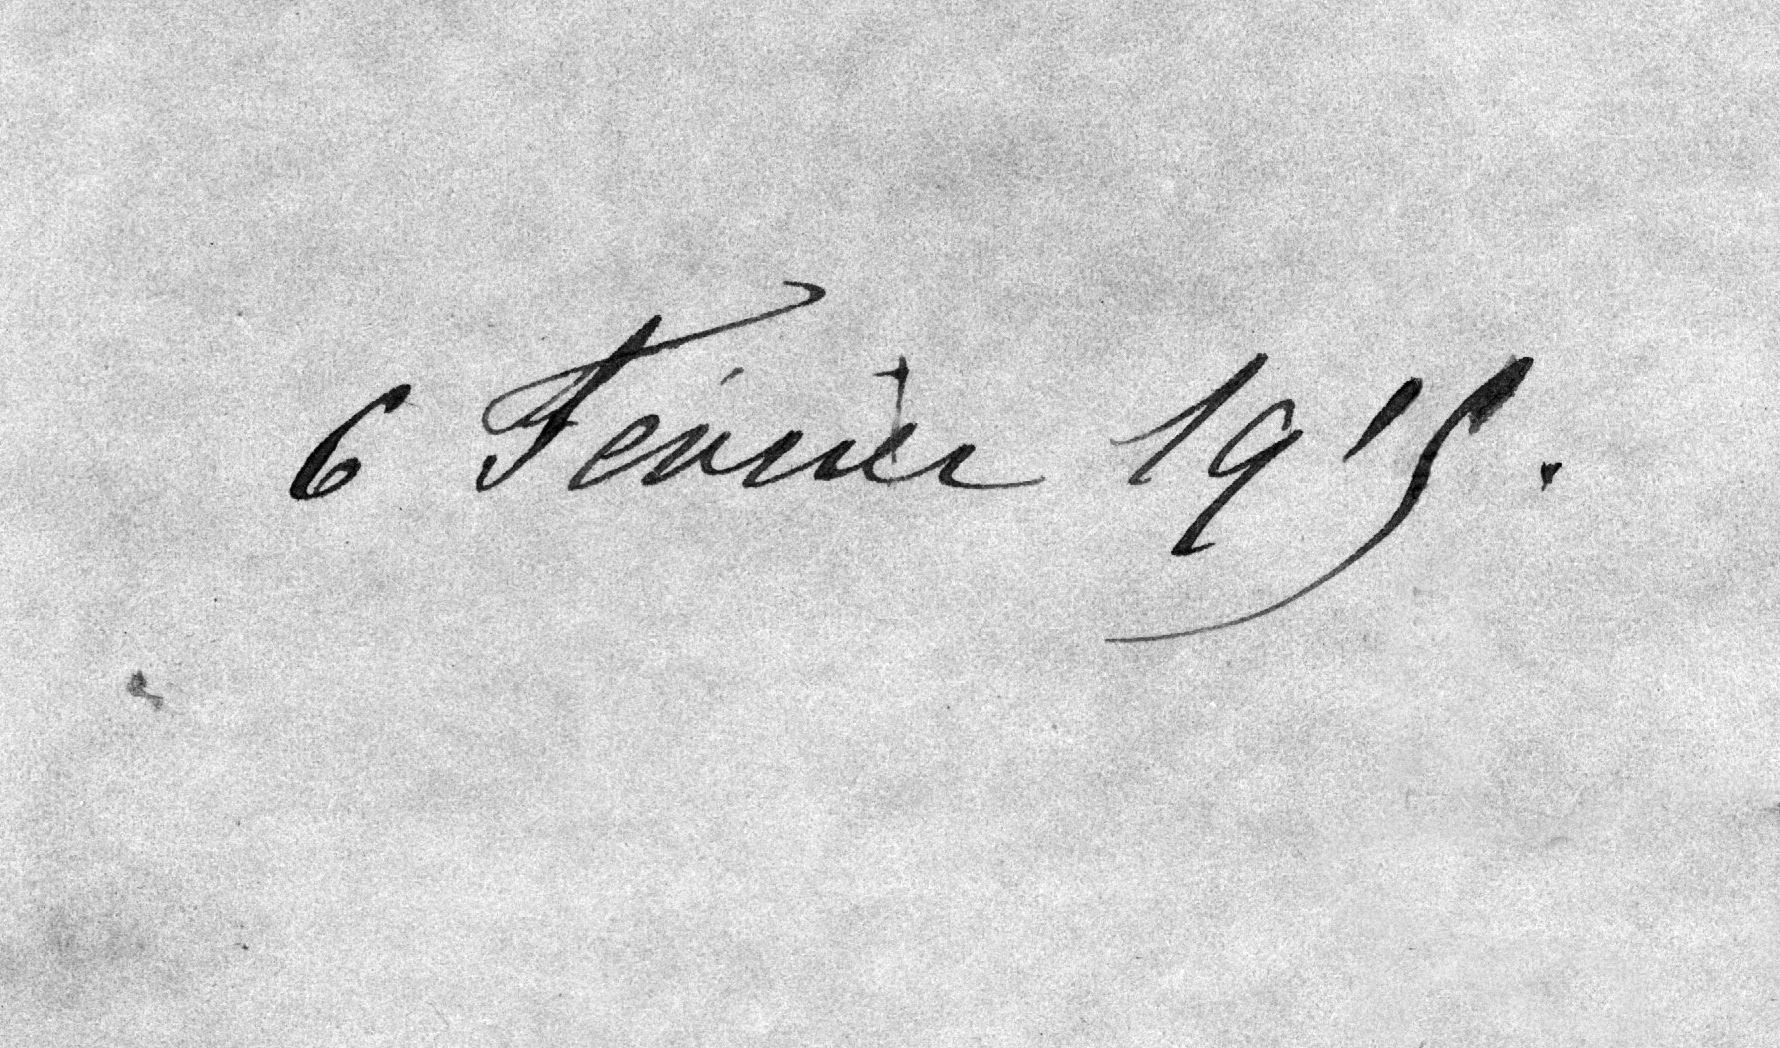 6 Février 1915.